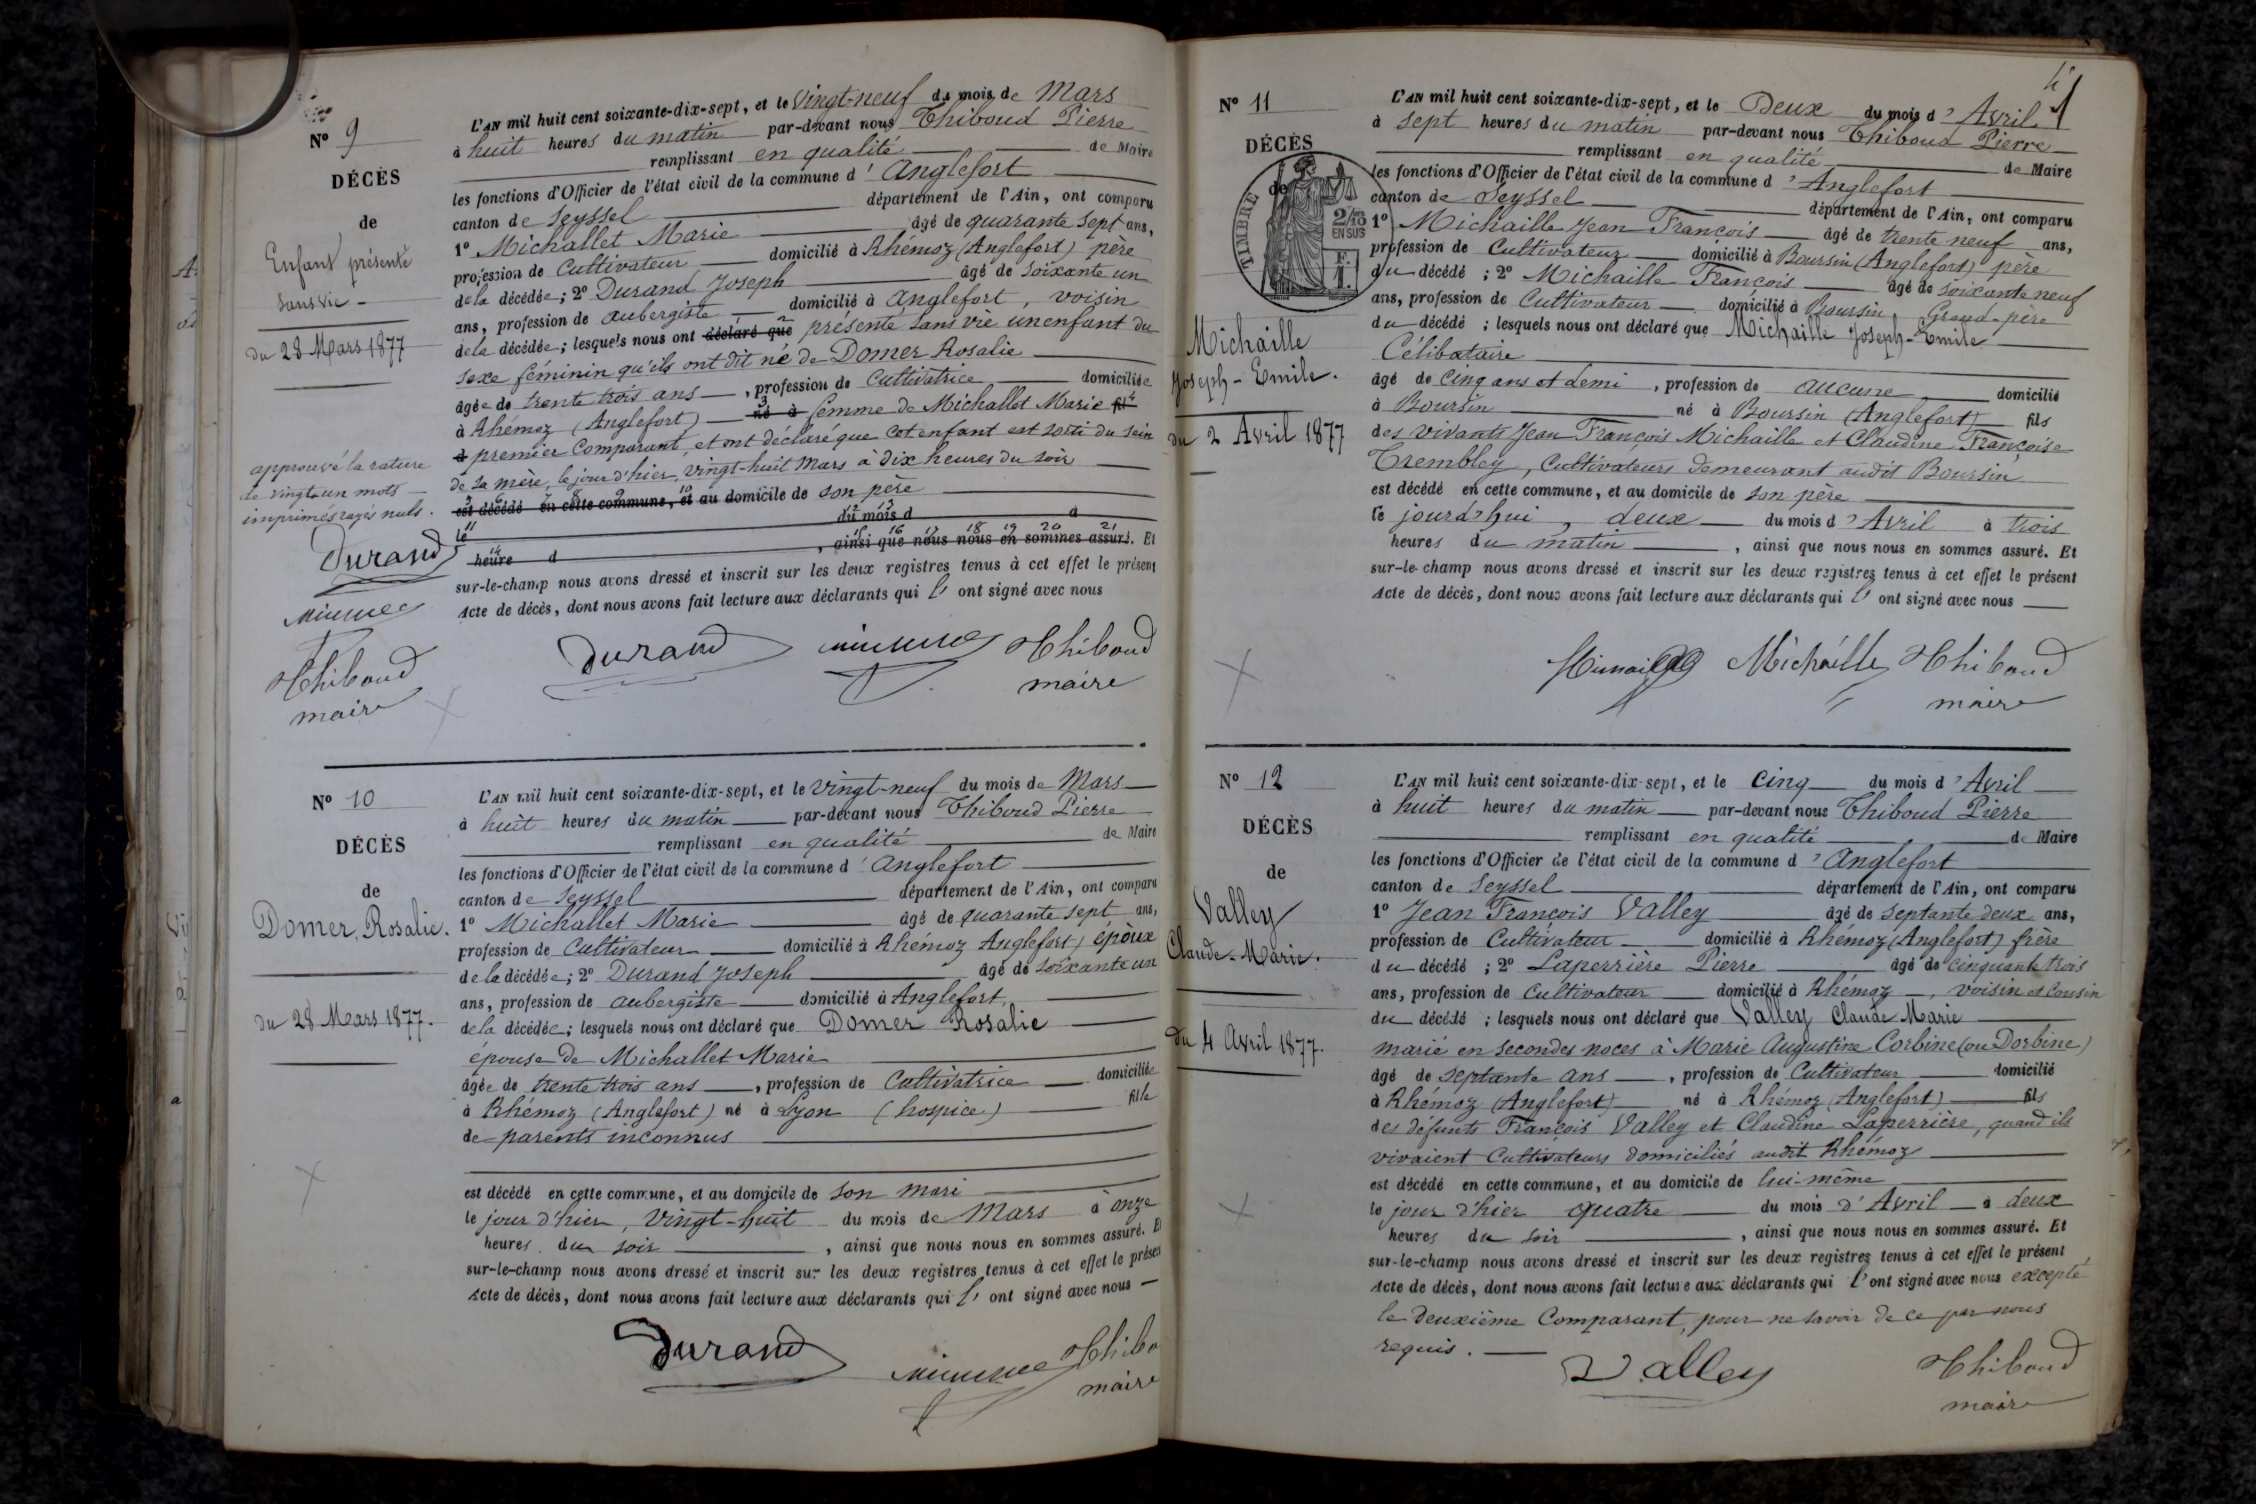 N° 9
DÉCÈS
de
Enfant présenté
sans vie -
du 28 Mars 1877
L'AN mil huit cent soixante-dix-sept, et le Vingt-neuf du mois de Mars
à huit heures du matin par-devant nous Thiboud Pierre
remplissant en qualité de Maire
les fonctions d'Officier de l'état civil de la commune d'Anglefort
canton de Seyssel département de l'Ain, ont comparu
1° Michallet Marie âgé de quarante sept ans,
profession de Cultivateur domicilié à Rhémoz (Anglefort) père
de la décédée; 2° Durand Joseph âgé de soixante un
ans, profession de aubergiste domicilié à Anglefort, voisin
de la décédée; lesquels nous ont déclaré que présenté sans vie un enfant du
sexe féminin qu'ils ont dit né de Domer Rosalie
âgée de trente trois ans, profession de Cultivatrice domiciliée
à Rhémoz (Anglefort) né à femme de Michallet Marie fil
d premier Comparant, et ont déclaré que cet enfant est sorti du sein
de sa mère, le jour d'hier, vingt-huit Mars à dix heures du soir
est décédé en cette commune, et au domicile de son père
le du mois d à
heure d , ainsi que nous nous en sommes assuré. Et
sur-le-champ nous avons dressé et inscrit sur les deux registres tenus à cet effet le présent
Acte de décès, dont nous avons fait lecture aux déclarants qui l'ont signé avec nous
approuvé la rature
de vingt un mots
imprimés rayés nuls.
Durand
Thiboud
maire
Durand Thiboud
maire
N° 10
DÉCÈS
de
Domer, Rosalie.
du 28 Mars 1877.
L'AN mil huit cent soixante-dix-sept, et le vingt-neuf du mois de Mars
à huit heures du matin par-devant nous Thiboud Pierre
remplissant en qualité de Maire
les fonctions d'Officier de l'état civil de la commune d'Anglefort
canton de Seyssel département de l'Ain, ont comparu
1° Michallet Marie âgé de quarante sept ans,
profession de Cultivateur domicilié à Rhémoz Anglefort) époux
de la décédée; 2° Durand Joseph âgé de soixante un
ans, profession de aubergiste domicilié à Anglefort,
de la décédée; lesquels nous ont déclaré que Domer Rosalie
épouse de Michallet Marie
âgée de trente trois ans, profession de Cultivatrice domiciliée
à Rhémoz (Anglefort) né à Lyon (hospice) fille
de parents inconnus
est décédé en cette commune, et au domicile de son mari
le jour d'hier, vingt-huit du mois de Mars à onze
heures du soir, ainsi que nous nous en sommes assuré. Et
sur-le-champ nous avons dressé et inscrit sur les deux registres tenus à cet effet le présen
Acte de décès, dont nous avons fait lecture aux déclarants qui l'ont signé avec nous
Durand Thibo
maire
N° 11
DÉCÈS
de
TIMBRE
2/10
EN SUS
F.
1.
Michaille
Joseph-Emile.
du 2 Avril 1877
L'AN mil huit cent soixante-dix-sept, et le Deux du mois d'Avril
à sept heures du matin par-devant nous Thiboud Pierre
remplissant en qualité de Maire
les fonctions d'Officier de l'état civil de la commune d'Anglefort
canton de Seyssel département de l'Ain, ont comparu
1° Michaille Jean François âgé de trente neuf ans,
profession de Cultivateur domicilié à Boursin (Anglefort) père
du décédé; 2° Michaille François âgé de soixante neuf
ans, profession de Cultivateur domicilié à Boursin Grand-père
du décédé; lesquels nous ont déclaré que Michaille Joseph-Emile
Célibataire
âgé de cinq ans et demi, profession de aucune domicilié
à Boursin né à Boursin (Anglefort) fils
des vivants Jean François Michaille et Claudine Françoise
Trembley, Cultivateurs demeurant audit Boursin
est décédé en cette commune, et au domicile de son père
le jourd'hui, deux du mois d'Avril à trois
heures du matin, ainsi que nous nous en sommes assuré. Et
sur-le-champ nous avons dressé et inscrit sur les deux registres tenus à cet effet le présent
Acte de décès, dont nous avons fait lecture aux déclarants qui l'ont signé avec nous
Michaille Thiboud
maire
N° 12
DÉCÈS
de
Valley
Claude-Marie.
du 4 Avril 1877.
L'AN mil huit cent soixante-dix-sept, et le Cinq du mois d'Avril
à huit heures du matin par-devant nous Thiboud Pierre
remplissant en qualité de Maire
les fonctions d'Officier de l'état civil de la commune d'Anglefort
canton de Seyssel département de l'Ain, ont comparu
1° Jean François Valley âgé de septante deux ans,
profession de Cultivateur domicilié à Rhémoz (Anglefort) frère
du décédé; 2° Laperrière Pierre âgé de cinquante trois
ans, profession de Cultivateur domicilié à Rhémoz, voisin et Cousin
du décédé; lesquels nous ont déclaré que Valley Claude Marie
marié en secondes noces à Marie Augustine Corbine (ou Dorbine)
âgé de septante ans, profession de Cultivateur domicilié
à Rhémoz (Anglefort) né à Rhémoz (Anglefort) fils
des défunts François Valley et Claudine Laperrière, quand ils
vivaient Cultivateurs domiciliés audit Rhémoz
est décédé en cette commune, et au domicile de lui-même
le jour d'hier quatre du mois d'Avril à deux
heures du soir, ainsi que nous nous en sommes assuré. Et
sur-le-champ nous avons dressé et inscrit sur les deux registres tenus à cet effet le présent
Acte de décès, dont nous avons fait lecture aux déclarants qui l'ont signé avec nous excepté
le deuxième Comparant, pour ne savoir de ce par nous
requis.
Valley Thiboud
maire